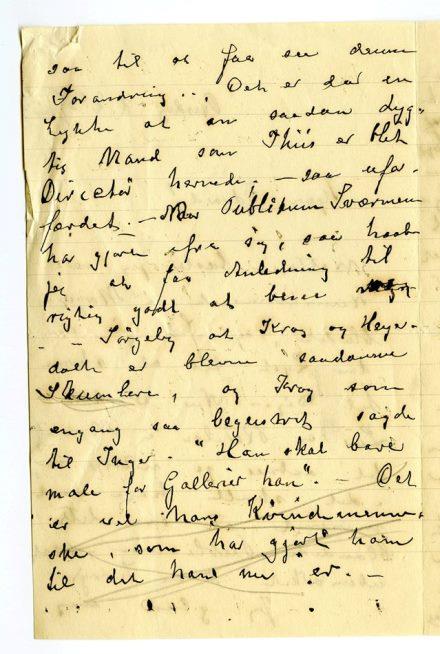 saa til at faa se denne
Forandring... Det er dog en
Lykke at en saadan dyg-
tig Mand som Thiis er blet
Directør hernede, — saa ufor-
færdet. — Naar Publikum Sværmen
har gjort ifra sig, saa haaber
jeg at faa Anledning til
rigtig godt at bese
— Sørgelig at Krog og Heyer-
dahl er blevne saadanne
Skumlere, og Krog som
engang saa begeistret sagde
til Inger. "Han skal bare
male for Gallerier han". — Det
er vel hans Kvindemenne-
ske, som har gjort ham
til det han nu er. —